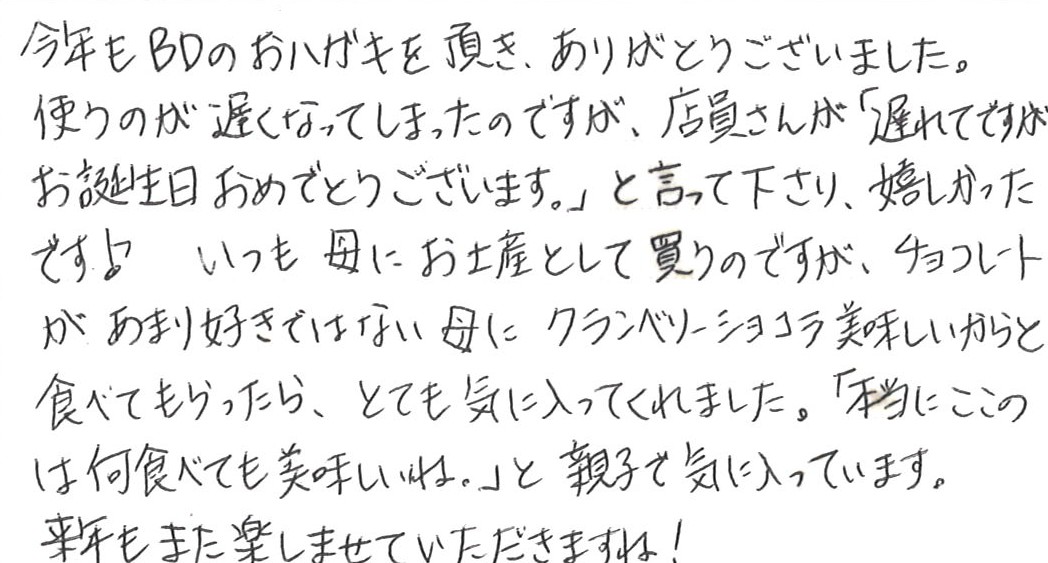 今年もBDのおハガキを頂き、ありがとうございました。
使うのが遅くなってしまったのですが、店員さんが「遅れてですが
お誕生日おめでとうございます。」と言って下さり、嬉しかった
です♪ いつも母にお土産として買うのですが、チョコレート
があまり好きではない母にクランベリーショコラ美味しいからと
食べてもらったら、とても気に入ってくれました。「本当にここの
は何食べても美味しいね。」と親子で気に入っています。
来年もまた楽しませていただきますね!